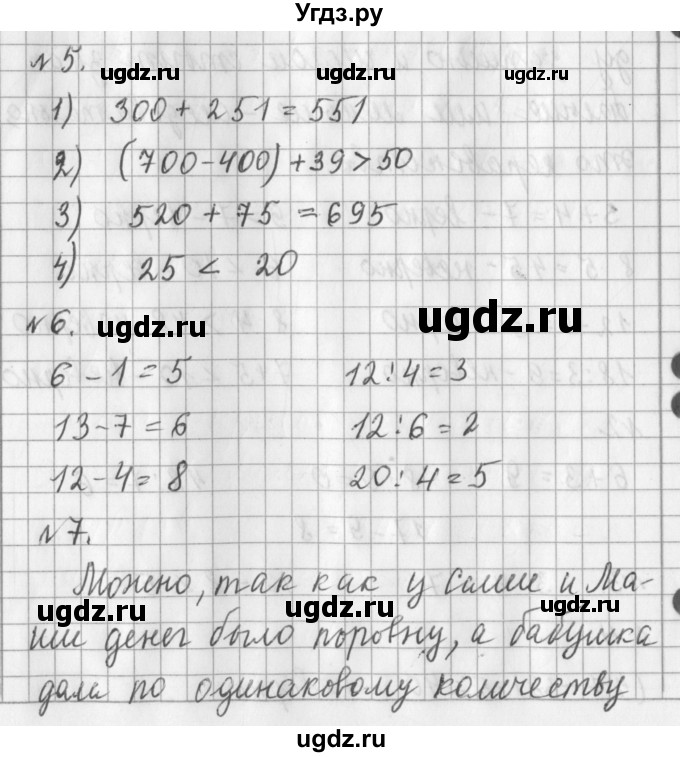 Угдз.ру
№5.
ugdz.ru ugdz.ru
1) 300 + 251 = 551
2) (700-400) +39 > 50
3) 520 + 75 = 695
ugdz.ru ugdz.ru
4) 25 < 20
№6. ugdz.ru ugdz.ru
6 - 1 = 5 12 : 4 = 3
13 - 7 = 6 12 : 6 = 2
12 - 4 = 8 20 : 4 = 5
№7.
Можно, так как у Саши и Ма-
ugdz.ru ugdz.ru ugdz.ru
ши денег было поровну, а бабушка
дала по одинаковому количеству
ugdz.ru